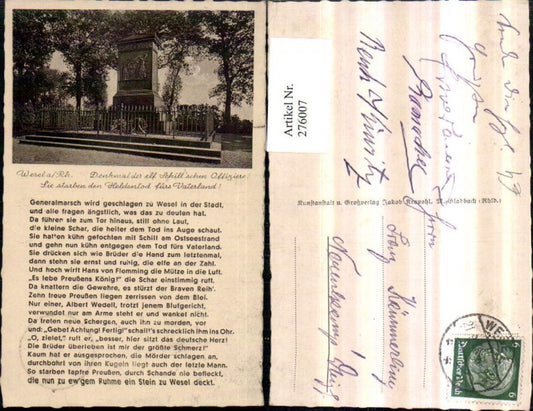 Wesel a/Rh. Denkmal der elf Schill'schen Offiziere.
Sie starben den Heldentod fürs Vaterland!
Generalmarsch wird geschlagen zu Wesel in der Stadt,
und alle fragen ängstlich, was das zu deuten hat.
Da führen sie zum Tor hinaus, still ohne Laut,
die kleine Schar, die heiter dem Tod ins Auge schaut.
Sie hatten kühn gefochten mit Schill am Ostseestrand
und gehn nun kühn entgegen dem Tod fürs Vaterland.
Sie drücken sich wie Brüder die Hand zum letztenmal,
dann stehn sie ernst und ruhig, die elfe an der Zahl.
Und hoch wirft Hans von Flemming die Mütze in die Luft.
„Es lebe Preußens König!" die Schar einstimmig ruft.
Da knattern die Gewehre, es stürzt der Braven Reih'.
Zehn treue Preußen liegen zerrissen von dem Blei.
Nur einer, Albert Wedell, trotzt jenem Blutgericht,
verwundet nur am Arme steht er und wanket nicht.
Da treten neue Schergen, auch ihn zu morden, vor
und: „Gebet Achtung! Fertig!" schallt's schrecklich ihm ins Ohr.
„O, zielet," ruft er, „besser, hier sitzt das deutsche Herz!
Die Brüder überleben ist mir der größte Schmerz!"
Kaum hat er ausgesprochen, die Mörder schlagen an,
durchbohrt von ihren Kugeln liegt auch der letzte Mann.
So starben tapfre Preußen, durch Schande nie befleckt,
die nun zu ew'gem Ruhme ein Stein zu Wesel deckt.
Artikel Nr.
276007
Kunstanstalt u. Großverlag Jakob Krapohl, M.Gladbach (Rhld.)
Herrn
WES
6
Deutsches Reich
6